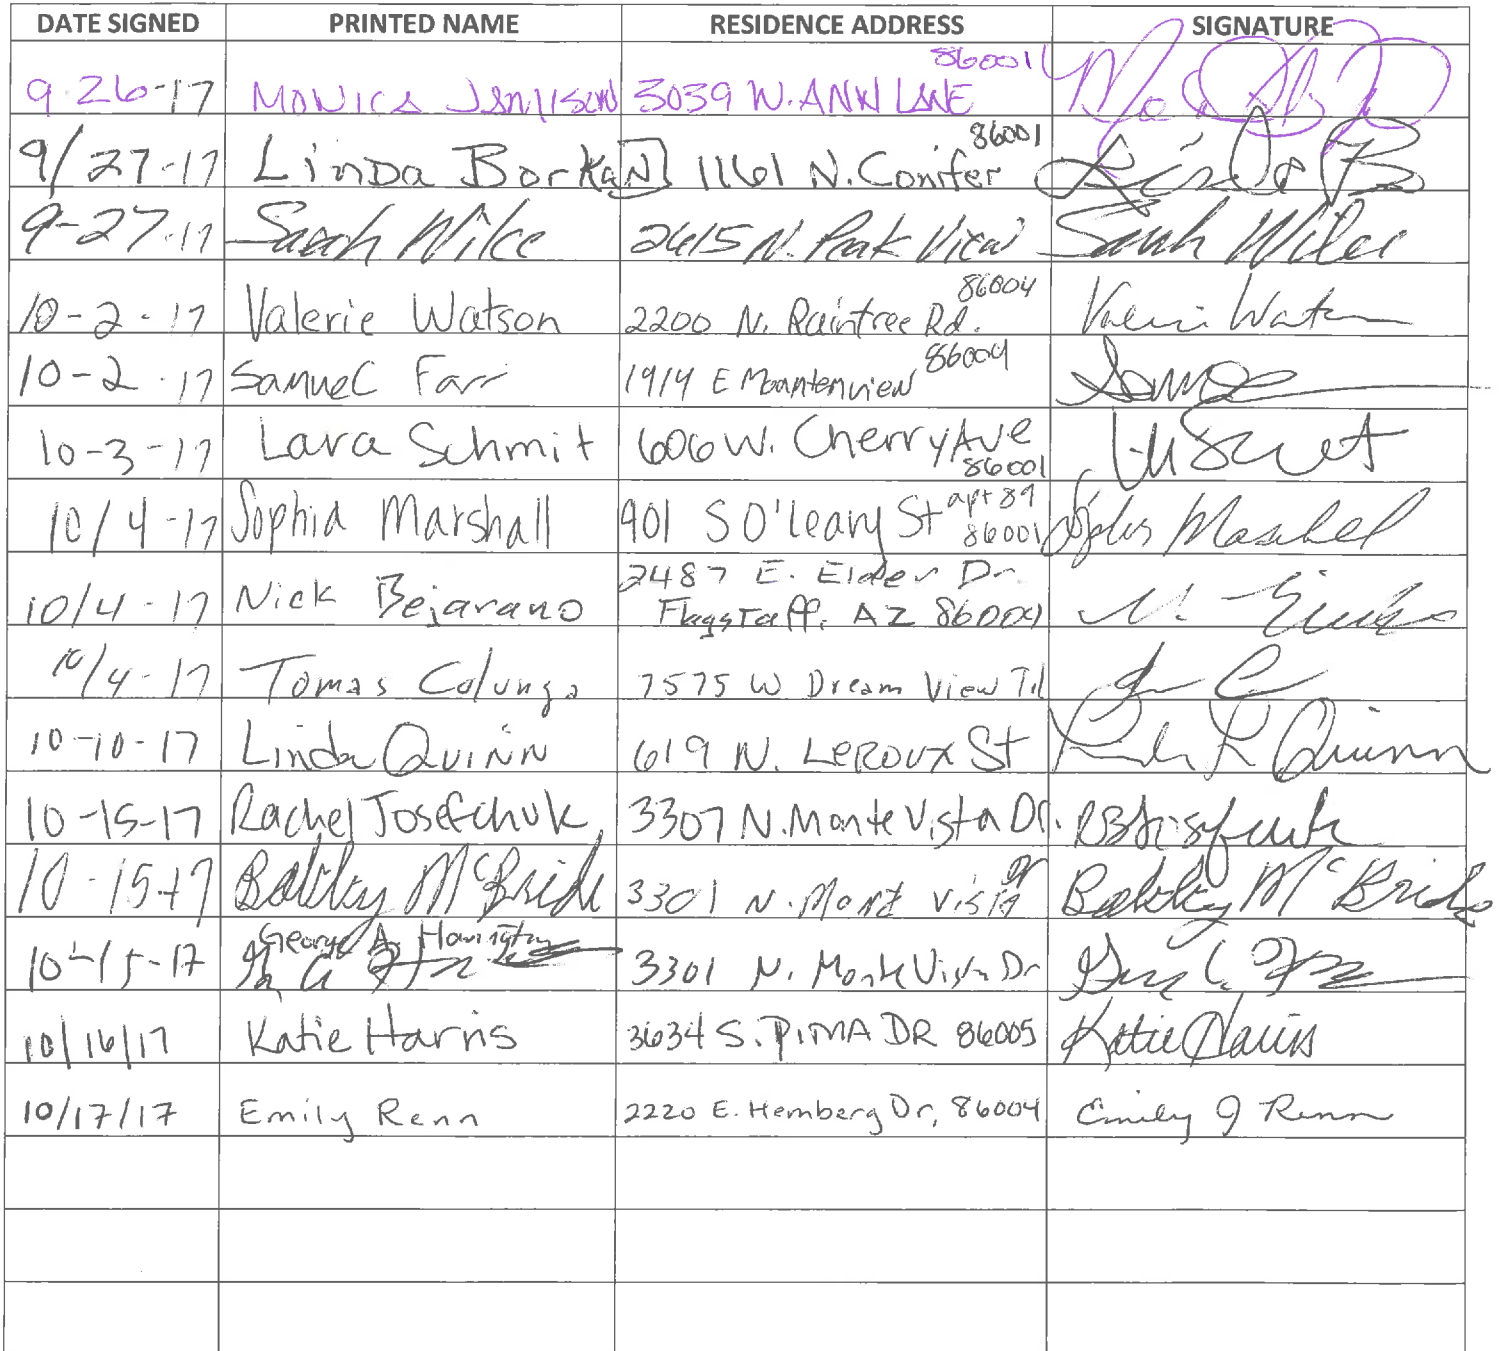 DATE SIGNED PRINTED NAME RESIDENCE ADDRESS SIGNATURE
86001
9-26-17 MONICA 3039 W. ANN LANE
86001
9/27-17 Linda Borkan 1161 N. Conifer Linda B
9-27-17 Sarah Wilce 2615 N. Peak View Sarah Wilce
86004
10-2-17 Valerie Watson 2200 N. Raintree Rd. Valerie Watson
86004
10-2-17 Samuel Farr 1914 E Mountenview
10-3-17 Lara Schmit 606 W. Cherry Ave
86001
apt 89
10/4-17 Sophia Marshall 901 S O'Leary St 86001 Sophia Marshall
2487 E. Elder Dr.
10/4-17 Nick Bejarano Flagstaff, AZ 86004
10/4-17 Tomas Colunga 7575 W Dream View Trl
10-10-17 Linda Quinn 619 N. Leroux St Linda R Quinn
10-15-17 Rachel Josefchuk 3307 N. Monte Vista Dr.
Dr
10-15-17 Bobby McBride 3301 N. Mont Vista Bobby McBride
George A. Harrington
10-15-17 3301 N. Monte Vista Dr
10/16/17 Katie Harris 3634 S. PIMA DR 86005 Katie Harris
10/17/17 Emily Renn 2220 E. Hemberg Dr, 86004 Emily J Renn